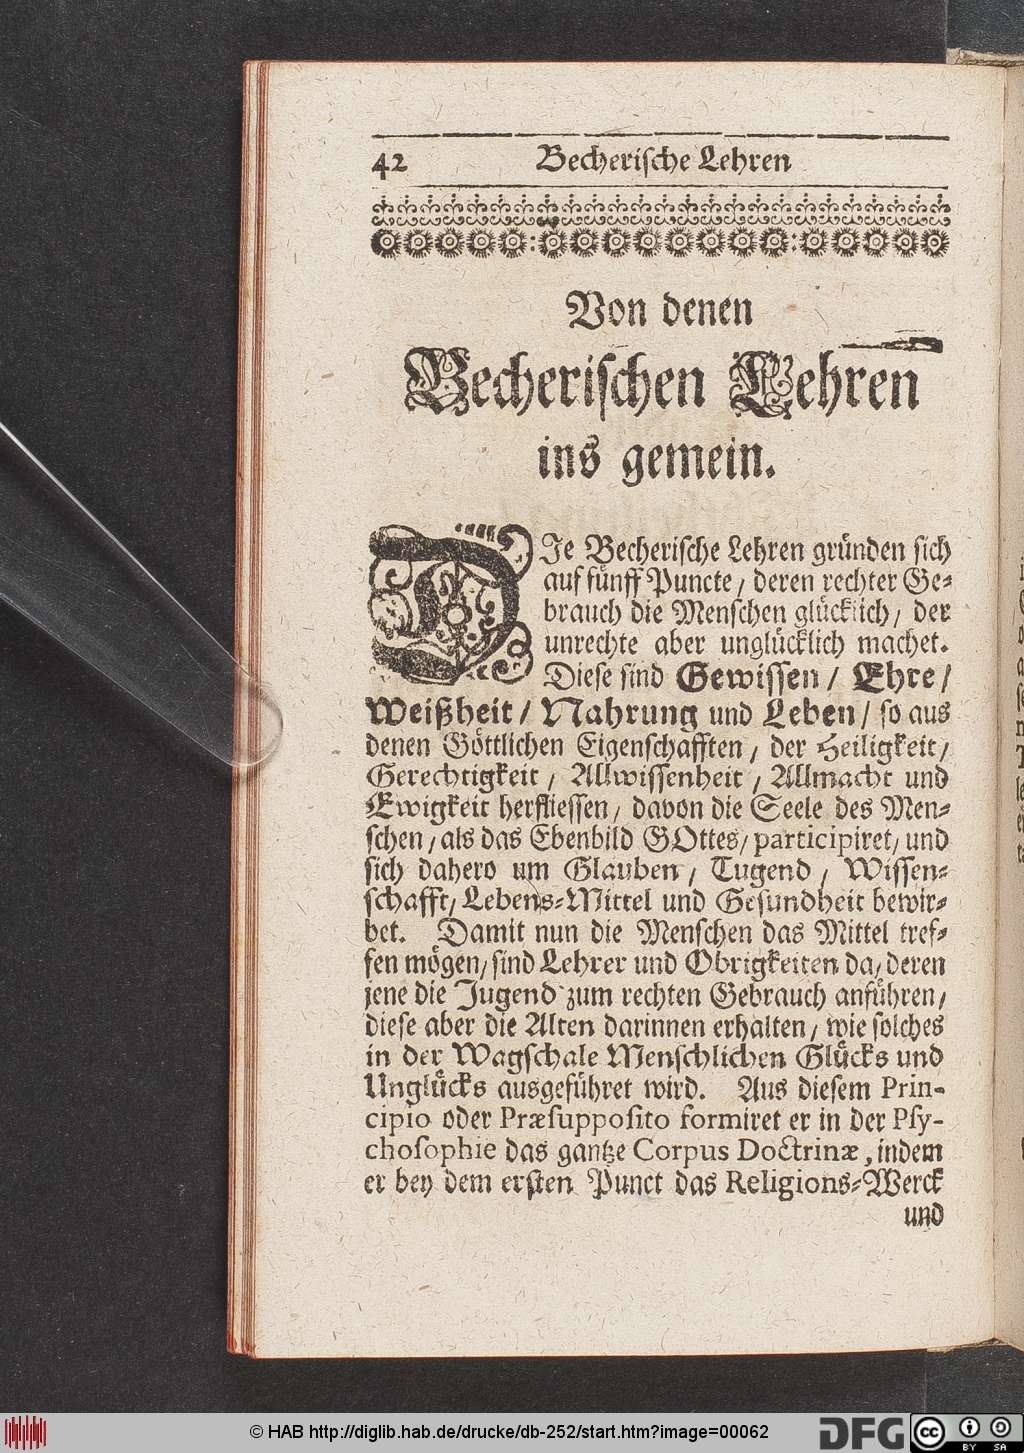 42 Becherische Lehren
Von denen
Becherischen Lehren
ins gemein.
DJe Becherische Lehren gründen sich
auf fünff Puncte, deren rechter Ge-
brauch die Menschen glücklich, der
unrechte aber unglücklich machet.
Diese sind Gewissen, Ehre,
Weißheit, Nahrung und Leben, so aus
denen Göttlichen Eigenschafften, der Heiligkeit,
Gerechtigkeit, Allwissenheit, Allmacht und
Ewigkeit herfliessen, davon die Seele des Men-
schen, als das Ebenbild GOttes, participiret, und
sich dahero um Glauben, Tugend, Wissen-
schafft, Lebens-Mittel und Gesundheit bewir-
bet. Damit nun die Menschen das Mittel tref-
fen mögen, sind Lehrer und Obrigkeiten da, deren
jene die Jugend zum rechten Gebrauch anführen,
diese aber die Alten darinnen erhalten, wie solches
in der Wagschale Menschlichen Glücks und
Unglücks ausgeführet wird. Aus diesem Prin-
cipio oder Præsupposito formiret er in der Psy-
chosophie das gantze Corpus Doctrinæ, indem
er bey dem ersten Punct das Religions-Werck
und
© HAB http://diglib.hab.de/drucke/db-252/start.htm?image=00062
DFG
cc
BY SA